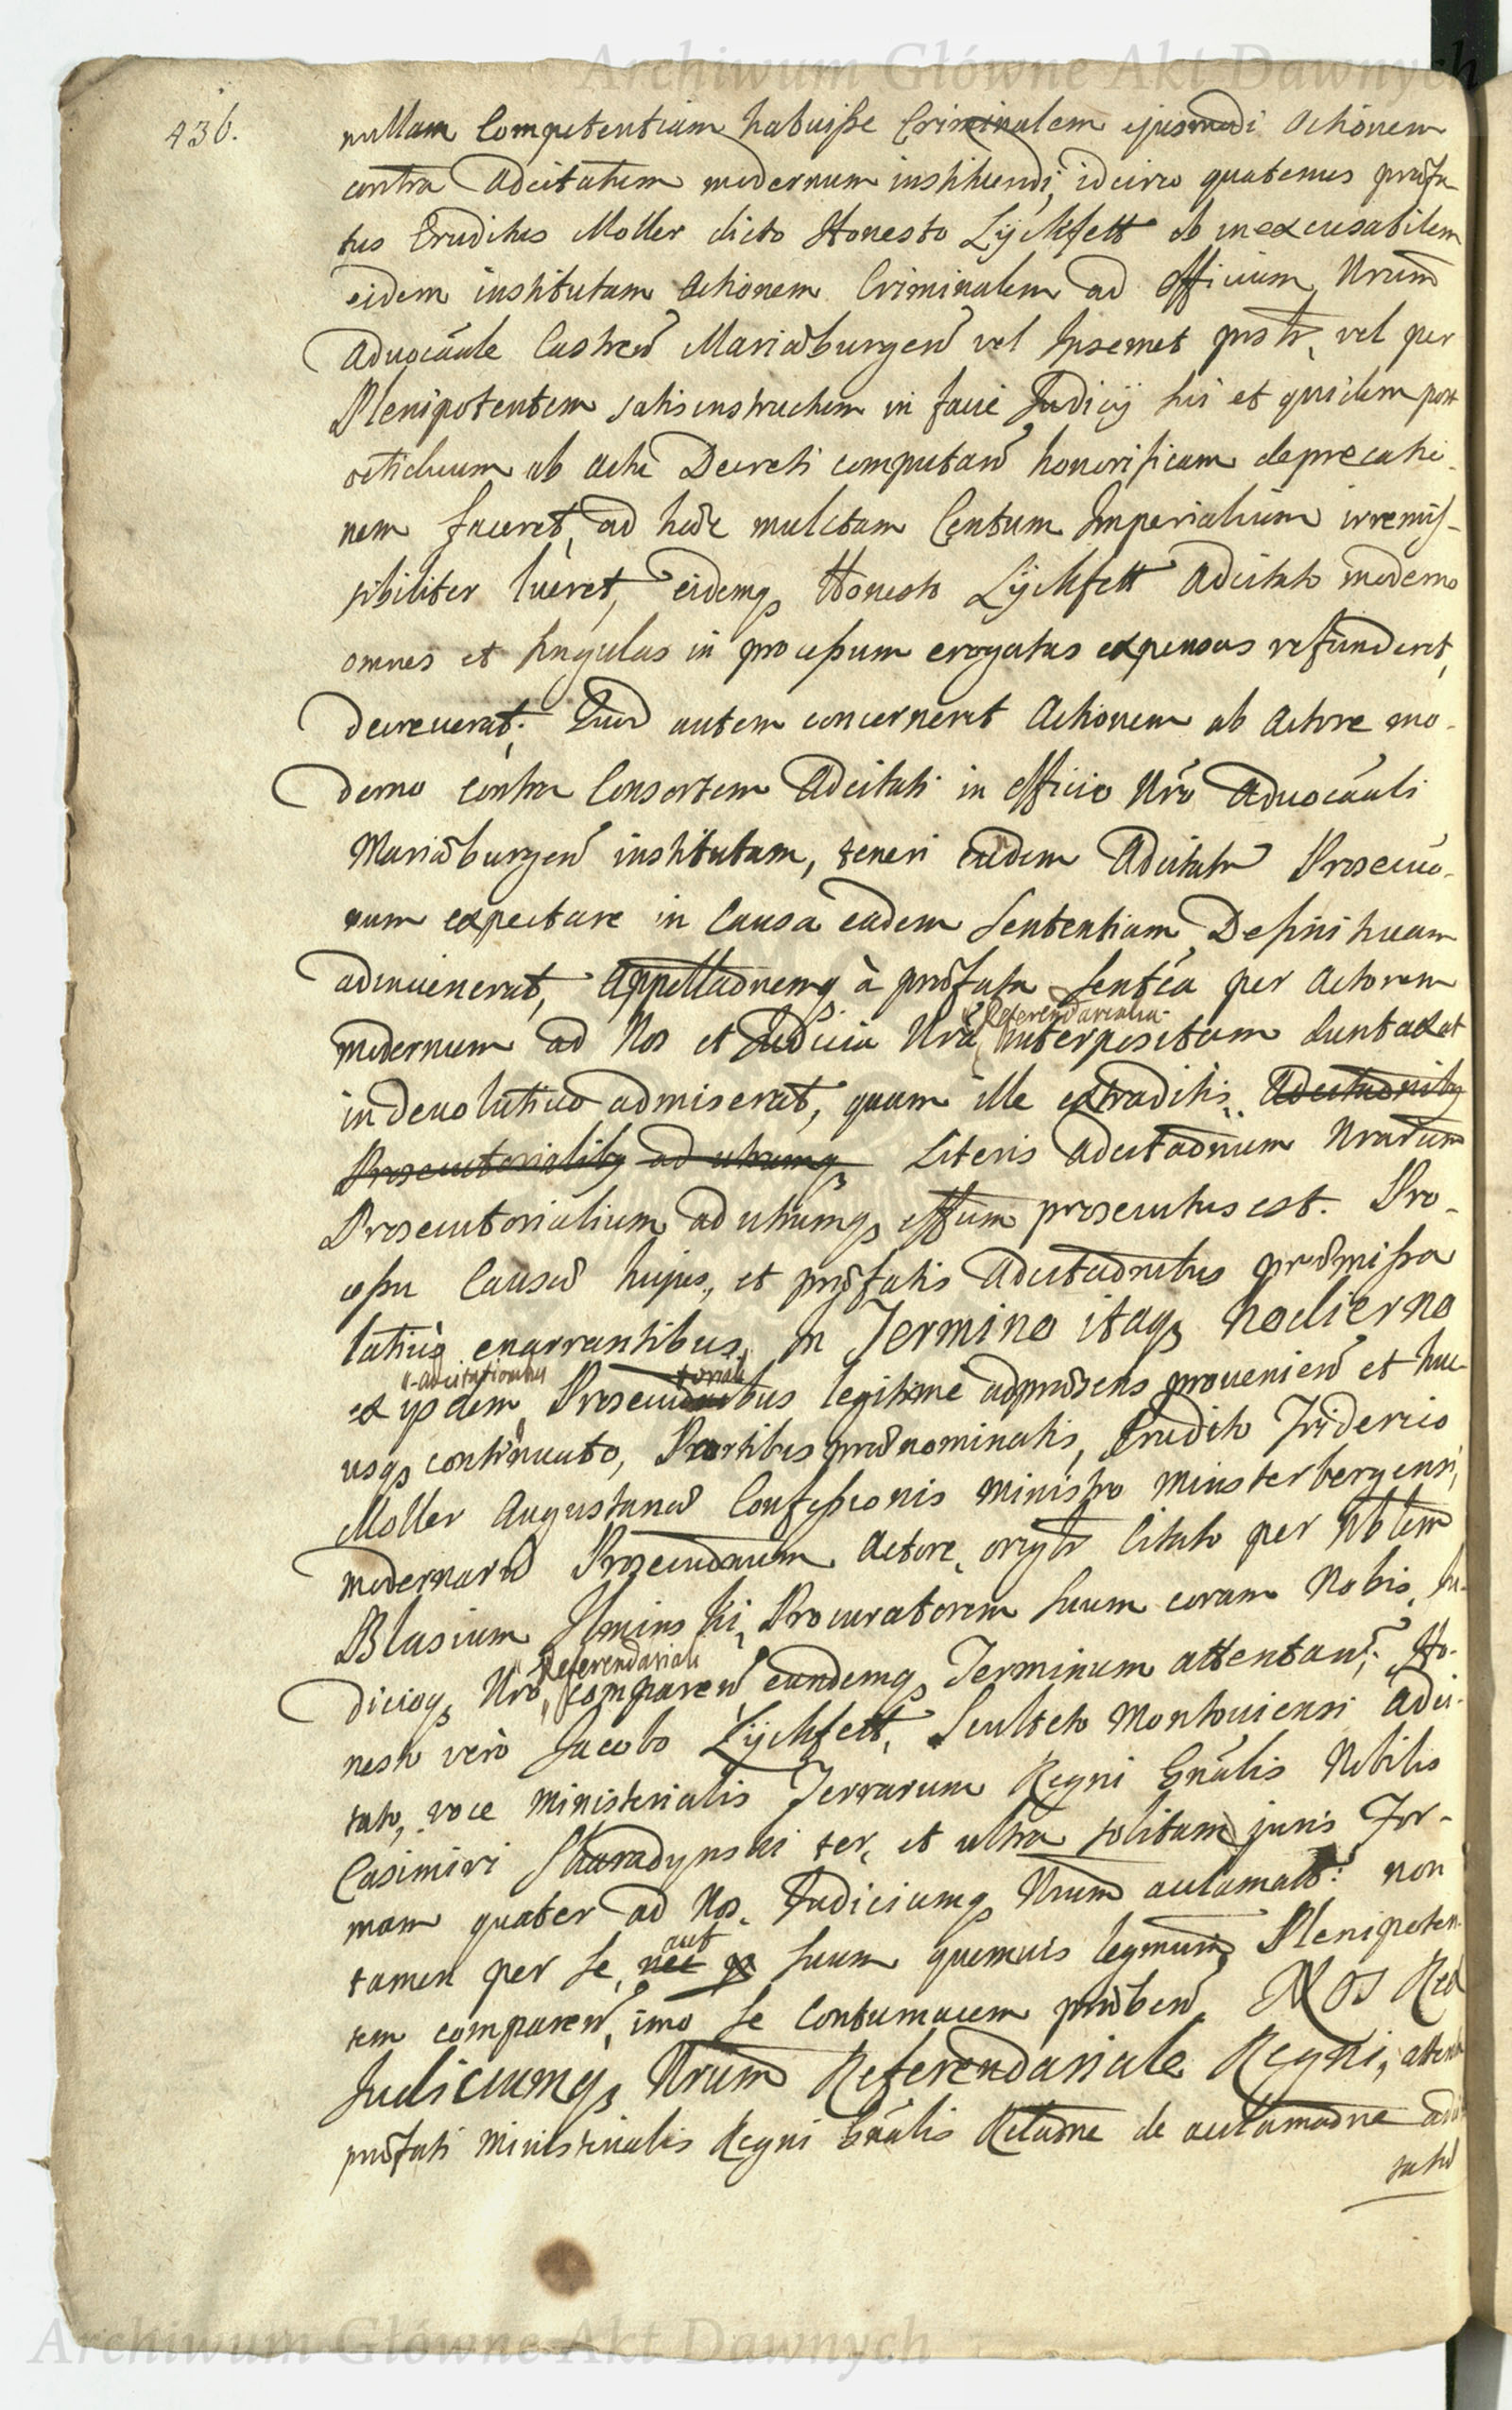 Archiwum Główne Akt Dawnych
436.
nullam Competentiam habuisse Criminalem ejusmodi Actionem
contra Adcitatum modernum instituendi, idcirco quatenus præfa-
tus Eruditus Moller dicto Honesto Lÿckfett ob inexcusabilem
eidem institutam Actionem Criminalem ad Officium Nrum
Advocãale Castren Mariæburgen vel Ipsemet pnsltr, vel per
Plenipotentem satis instructum in facie Judicij sui et quidem post
octiduum ab actu Decreti computan honorificam deprecatio-
nem faceret, ad hæc mulctam Centum Imperialium irremis-
sibiliter lueret, eidemq Honesto Lÿckfett Adcitato moderno
omnes et singulas in processum erogatas expensas refunderet,
decreverat. Quod autem concerneret Actionem ab Actore mo-
derno contra Consortem Adcitati in Officio Nro Advocãali
Mariæburgen institutam, teneri eadem Adcitatu Prosecuo-
num expectare in Causa eadem Sententiam Definitivam
adinvenerat, Appellaõnemq à præfata Sentĩa per Actorem
modernum ad Nos et Judicia Nra Referendarialia interpositam duntaxat
in devolutivo admiserat, quam ille extraditis Adcitaõnibq
Prosecutorialibq ad utrumq Literis Adcitaõnum Nrarum
Prosecutorialium ad utrumq effum prosecutus est. Pro-
cessu Causæ hujus, et præfatis Adcitaõnibus præmissa
latius enarrantibus, In Termino itaq hodierno
ex ijsdem Adcitationibus Prosecutorialibus legitime ad præsens provenien et huc-
usq continuato, Partibus prænominatis, Erudito Friderico
Moller Augustanæ Confessionis Ministro Minsterbergensi,
modernarũ Prosecuõnum Actore, origltr Citato per Nblem
Blasium Ilminski, Procuratorem suum coram Nobis, Ju-
dicioq Nro Referendariali comparen eundemq Terminum attentan; Ho-
nesto verò Jacobo Lÿckfett, Sculteto Montoviensi Adci-
tato, voce Ministerialis Terrarum Regni Gnãlis Nobilis
Casimiri Skaradynski ter, et ultra solitam juris For-
mam quater ad Nos, Judiciumq Nrum acclamato: non
tamen per se, nec aut suum quemvis legmum Plenipoten-
tem comparen, imo se Contumacem præben. NOS Rex
Judiciumq Nrum Referendariale Regni, attenta
præfati Ministerialis Regni Gnãlis Relaõne de acclamaõne adci-
tati
Archiwum Główne Akt Dawnych